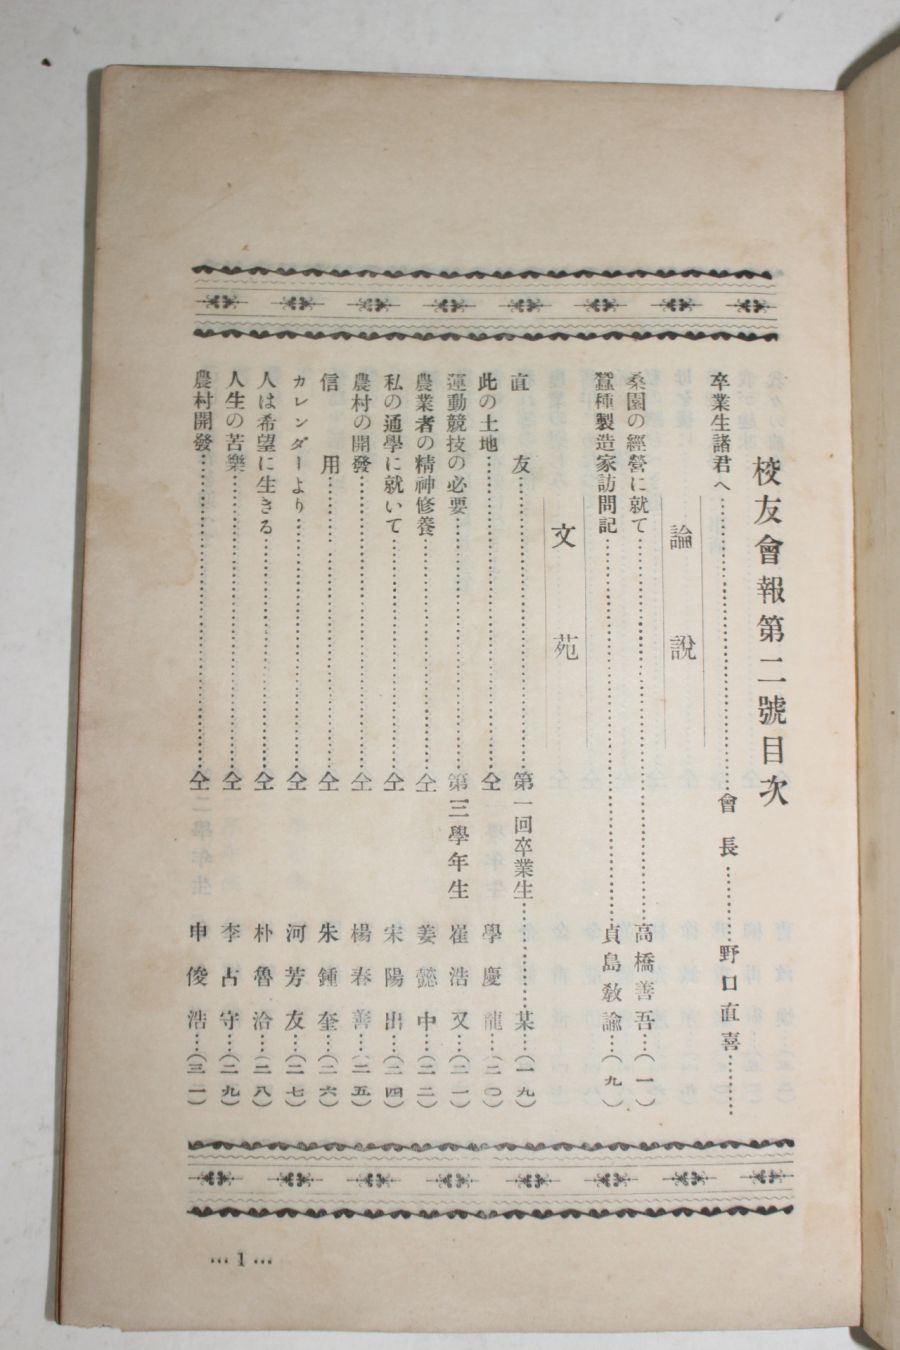 校友會報第二號目次
卒業生諸君へ……會長……野口直喜……
論說
桑園の經營に就て……高橋善吾…(一)
蠶種製造家訪問記……貞島敎諭…(九)
文苑
直友……第一回卒業生……某…(一九)
此の土地……仝 學慶龍…(二〇)
運動競技の必要……第三學年生 崔浩又…(二一)
農業者の精神修養……仝 姜懿中…(二二)
私の通學に就いて……仝 宋陽出…(二四)
農村の開發……仝 楊春善…(二五)
信用……仝 朱鍾奎…(二六)
カレンダーより……仝 河芳友…(二七)
人は希望に生きる……仝 朴魯洽…(二八)
人生の苦樂……仝 李占守…(二九)
農村開發……仝 申俊浩…(三一)
…1…